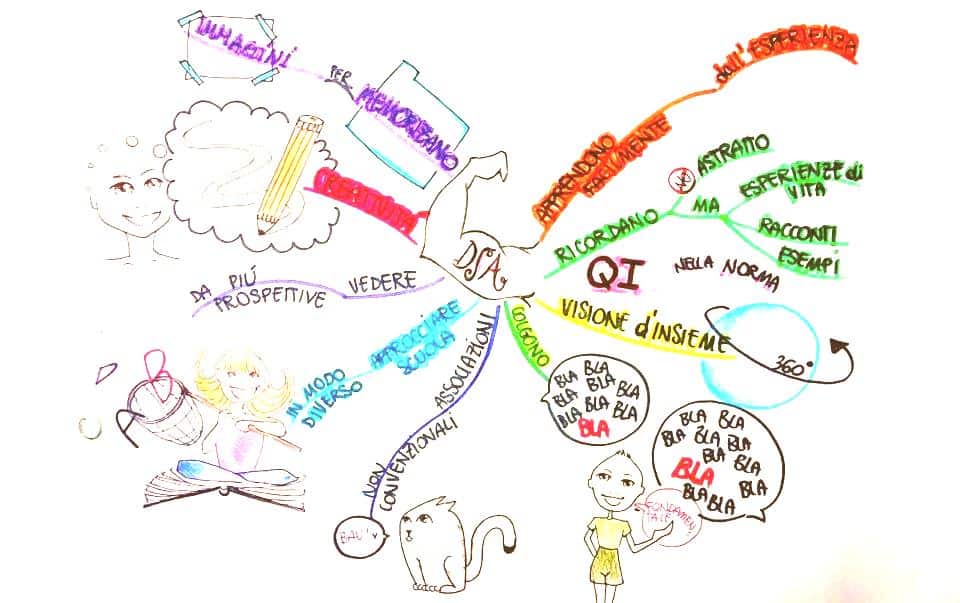 IMMAGINI
PER
MEMORIZZANO
CREATIVITÀ
DSA
APPRENDONO
FACILMENTE
dall'ESPERIENZA
RICORDANO
NO
ASTRATTO
MA
ESPERIENZE di
VITA
RACCONTI
ESEMPI
QI
NELLA NORMA
VISIONE d'INSIEME
360°
COLGONO
BLA BLA
BLA BLA BLA
BLA BLA BLA
BLA
BLA BLA
BLA BLA BLA
BLA BLA
BLA
BLA BLA BLA
FONDAMEN
TALE
ASSOCIAZIONI
NON
CONVENZIONALI
BAU
APPROCCIARE
SCUOLA
IN MODO
DIVERSO
VEDERE
DA PIÚ
PROSPETTIVE